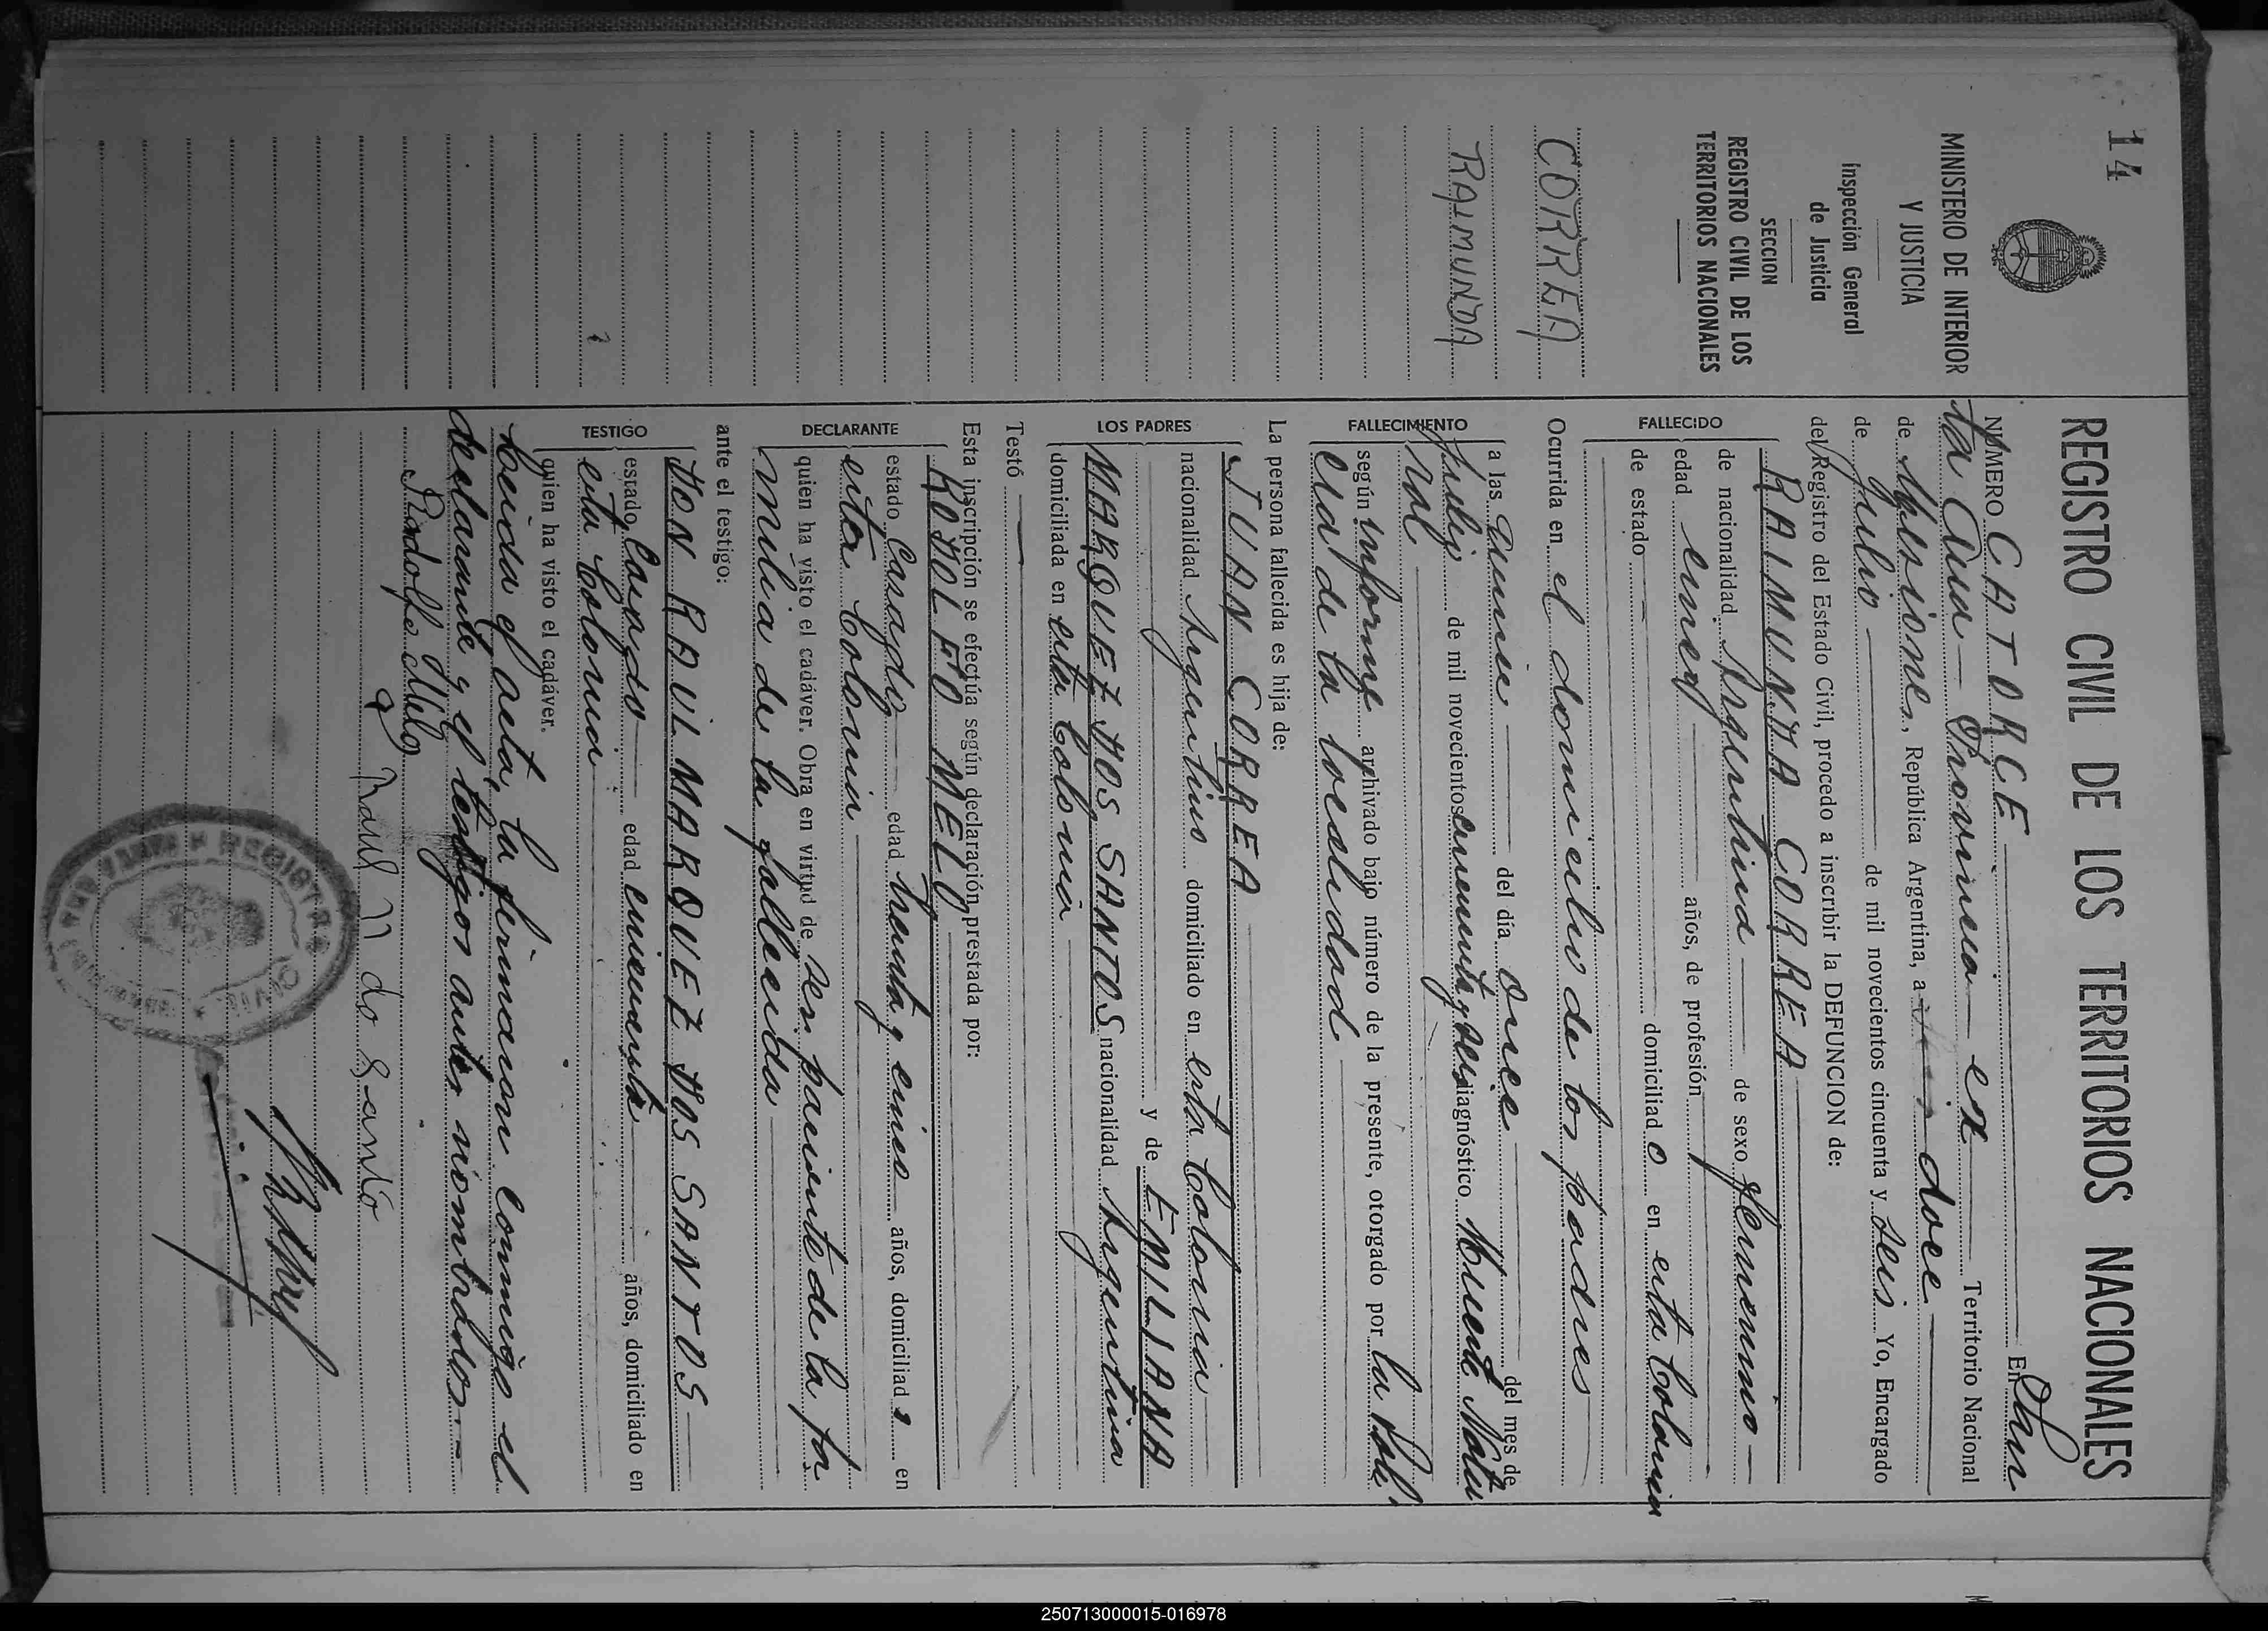 14
MINISTERIO DE INTERIOR
Y JUSTICIA
Inspección General
de Justicia
SECCION
REGISTRO CIVIL DE LOS
TERRITORIOS NACIONALES
CORREA
RAIMUNDA
REGISTRO CIVIL DE LOS TERRITORIOS NACIONALES
NUMERO CATORCE En San
ta Ana Provincia ex Territorio Nacional
de Misiones, República Argentina, a doce
de Julio de mil novecientos cincuenta y seis Yo, Encargado
del Registro del Estado Civil, procedo a inscribir la DEFUNCION de:
FALLECIDO
RAIMUNDA CORREA
de nacionalidad Argentina de sexo femenino
edad cinco años, de profesión
de estado domiciliad o en esta Colonia
Ocurrida en el domicilio de los padres
FALLECIMIENTO
a las quince del día once del mes de
Julio de mil novecientos cincuenta y seis diagnóstico Muerte Natu
ral
según informe archivado bajo número de la presente, otorgado por la Poli
cia de la localidad
La persona fallecida es hija de:
LOS PADRES
JUAN CORREA
nacionalidad Argentino domiciliado en esta Colonia
y de EMILIANA
MARQUEZ DOS SANTOS nacionalidad Argentina
domiciliada en esta Colonia
Testó
Esta inscripción se efectúa según declaración prestada por:
DECLARANTE
RODOLFO MELO
estado Casado edad treinta y cinco años, domiciliad o en
esta Colonia
quien ha visto el cadáver. Obra en virtud de ser pariente de la fa
milia de la fallecida
ante el testigo:
TESTIGO
DON RAUL MARQUEZ DOS SANTOS
estado Casado edad cincuenta años, domiciliado en
esta Colonia
quien ha visto el cadáver.
Leida el acta, la firmaron conmigo el
declarante y el testigos antes nombrados.-
Rodolfo Melo
Raul M do Santo
REGISTRO CIVIL
250713000015-016978